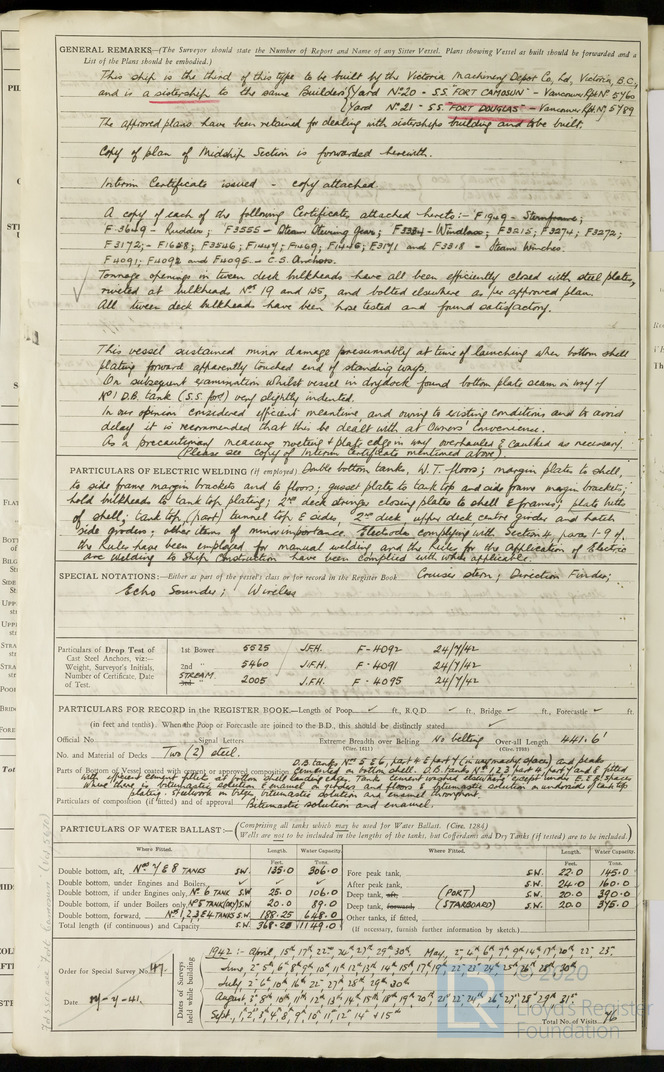 GENERAL REMARKS—(The Surveyor should state the Number of Report and Name of any Sister Vessel. Plans showing Vessel as built should be forwarded and a
List of the Plans should be embodied.)
This ship is the third of this type to be built by the Victoria Machinery Depot Co, Ld, Victoria, B.C.,
and is a sistership to the same Builders' Yard No 20 - S.S. "FORT CAMOSUN" - Vancouver Rpt No 5760
Yard No 21 - S.S. "FORT DOUGLAS" - Vancouver Rpt No 5789
The approved plans have been retained for dealing with sisterships building and to be built.
Copy of plan of Midship Section is forwarded herewith.
Interim Certificate issued - copy attached
A copy of each of the following Certificates, attached hereto:- F1949 - Sternframe;
F 3649 - Rudder; F3555 - Steam Steering Gear; F3384 - Windlass; F3215; F3274; F3272;
F3172; F1658; F3546; F1447; F1469; F3171 and F3318 - Steam Winches.
F4091; F4092 and F4095 - C.S. Anchors.
Tonnage openings in tween deck bulkheads have all been efficiently closed with steel plates,
riveted at bulkheads Nos 19 and 135, and bolted elsewhere as per approved plan.
All tween deck bulkheads have been hose tested and found satisfactory.
This vessel sustained minor damage presumably at time of launching when bottom shell
plating forward apparently touched end of standing ways.
On subsequent examination whilst vessel in drydock found bottom plate seam in way of
No 1 D.B. tank (S.S. for) very slightly indented.
In our opinion considered efficient meantime, and owing to existing conditions and to avoid
delay it is recommended that this be dealt with at Owners' Convenience.
As a precautionary measure riveting & plate edge in way overhauled & caulked as necessary.
(Please see copy of Interim Certificate mentioned above).
PARTICULARS OF ELECTRIC WELDING (if employed) Double bottom tanks, W.T. floors; margin plates to shell,
to side frame margin brackets and to floors; gusset plate to tank top and side frame margin brackets;
hold bulkheads to tank top plating; 2nd deck stringer closing plates to shell & frames; plate butts
of shell; tank top, (part) tunnel top & sides, 2nd deck, upper deck centre girder and hatch
side girders; other items of minor importance. Electrodes complying with Section 4, para 1-9 of
the Rules have been employed for manual welding and the Rules for the Application of Electric
arc Welding to Ship Construction have been complied with where applicable.
SPECIAL NOTATIONS:—Either as part of the vessel's class or for record in the Register Book Cruiser stern; Direction Finder;
Echo Sounder; Wireless
Particulars of Drop Test of Cast Steel Anchors, viz:— Weight, Surveyor's Initials, Number of Certificate, Date of Test.
1st Bower 5525 J.F.H. F-4092 24/7/42
2nd " 5460 J.F.H. F-4091 24/7/42
STREAM 3rd " 2005 J.F.H. F-4095 24/7/42
PARTICULARS FOR RECORD in the REGISTER BOOK.—Length of Poop ✓ ft., R.Q.D. ✓ ft., Bridge ✓ ft., Forecastle ✓ ft.
(in feet and tenths). When the Poop or Forecastle are joined to the B.D., this should be distinctly stated ✓
Official No. Signal Letters Extreme Breadth over Belting No belting Over-all Length 441.6'
(Circ. 1611) (Circ. 1703)
No. and Material of Decks Two (2) steel
D.B. tanks No 5 & 6, part 4 & part 7 (in way machy space) and peaks
Parts of Bottom of Vessel coated with cement or approved composition Cemented on bottom shell. D.B. tanks No 1, 2, 3 part 4, part 7 and 8 fitted
with efficient cement fillets at bottom shell landing edges. Tank cement washed elsewhere except under E. & B. spaces
where there is bitumastic solution & enamel on girders and floors & bitumastic solution on underside of tank top
plating. Steelwork in bilges bitumastic solution and enamel throughout.
Particulars of composition (if fitted) and of approval Bitumastic solution and enamel.
PARTICULARS OF WATER BALLAST:—(Comprising all tanks which may be used for Water Ballast. (Circ. 1284)
Wells are not to be included in the lengths of the tanks, but Cofferdams and Dry Tanks (if tested) are to be included.)
Where Fitted. Length. Water Capacity. Where Fitted. Length. Water Capacity.
Feet. Tons. Feet. Tons.
Double bottom, aft, Nos 7 & 8 TANKS S.W. 135.0 306.0
Double bottom, under Engines and Boilers ✓
Double bottom, if under Engines only, No 6 TANK S.W. 25.0 106.0
Double bottom, if under Boilers only, No 5 TANK (DRY) S.W. 20.0 89.0
Double bottom, forward, Nos 1, 2, 3 & 4 TANKS S.W. 188.25 648.0
Total length (if continuous) and Capacity 368.25 1149.0
Fore peak tank, S.W. 22.0 145.0
After peak tank, S.W. 24.0 160.0
Deep tank, aft, (PORT) S.W. 20.0 390.0
Deep tank, forward, (STARBOARD) S.W. 20.0 375.0
Other tanks, if fitted,
(If necessary, furnish further information by sketch.)
Order for Special Survey No. 47.
Date
Dates of Surveys held while building
1942 :- April, 15th 17th 22nd 24th 27th 29th 30th, May, 2nd 4th 6th 7th 9th 14th 17th 20th 22nd 25th
June, 2nd 5th 6th 8th 9th 10th 11th 12th 13th 14th 15th 17th 19th 22nd 23rd 24th 25th 26th 28th 30th
July, 2nd 6th 10th 16th 22nd 27th 28th 29th 30th
August, 5th 8th 10th 11th 12th 13th 14th 15th 18th 19th 20th 21st 22nd 24th 26th 27th 28th 29th 31st
Sept., 1st, 2nd, 3rd 4th, 8th, 9th, 10th, 11th, 12th 14th + 15th
Total No. of Visits 76
© 2020
LR
Lloyd's Register
Foundation